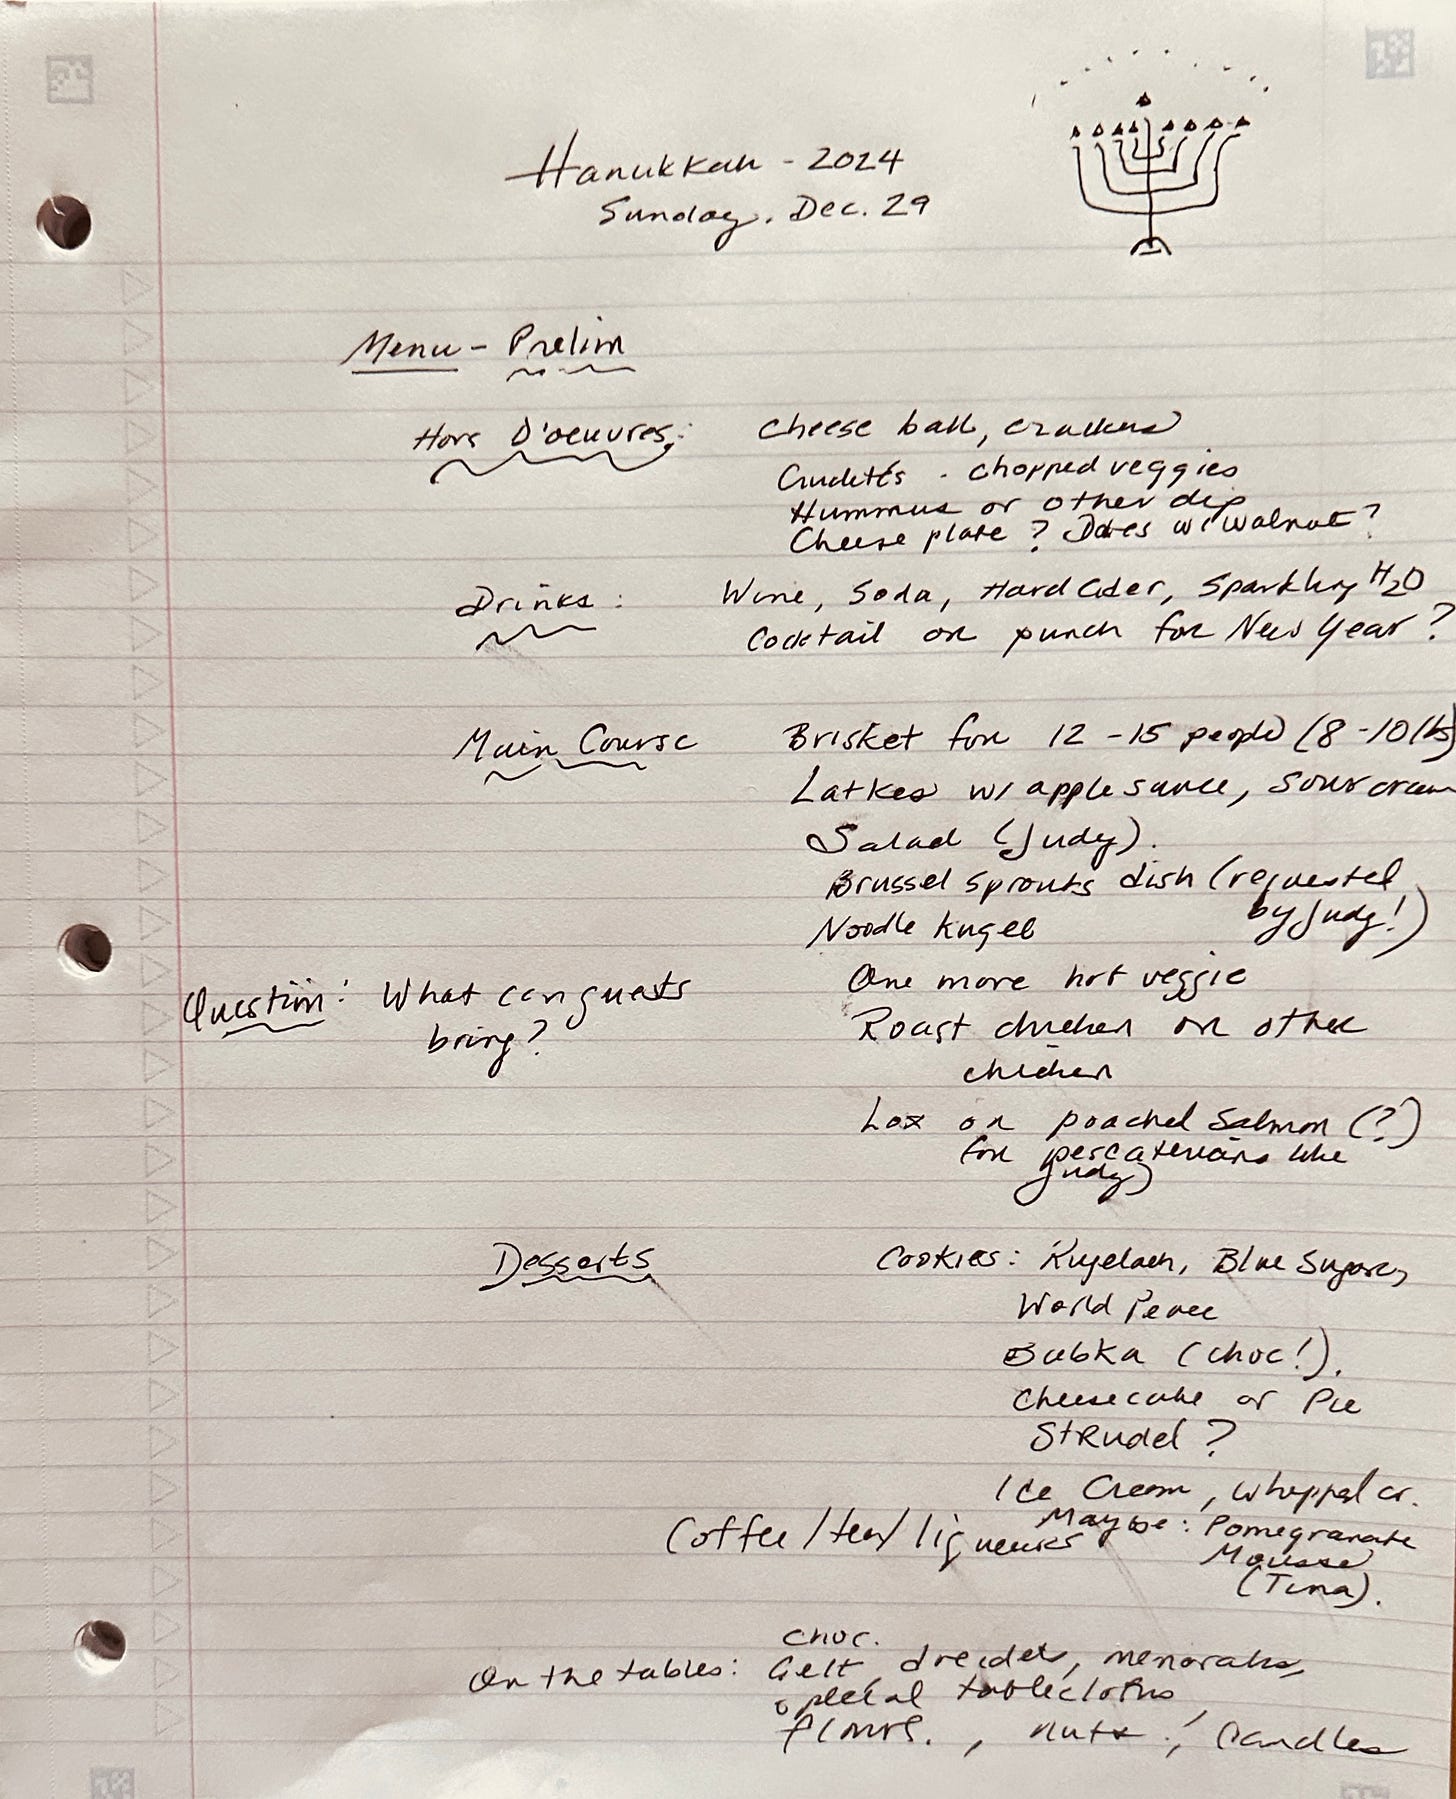 Hanukkah - 2024
Sunday, Dec. 29
Menu - Prelim
Hors D'oeuvres: Cheese ball, crackers
Crudettés - chopped veggies
Hummus or other dip
Cheese plate? Dates w/ walnut?
Drinks: Wine, Soda, Hard Cider, Sparkling H2O
Cocktail or punch for New Year?
Main Course Brisket for 12-15 people (8-10 lbs)
Latkes w/ applesauce, sour cream
Salad (Judy).
Brussel sprouts dish (requested
by Judy!)
Noodle kugel
One more hot veggie
Question: What can guests
bring?
Roast chicken or other
chicken
Lox or poached Salmon (?)
for pescaterians like
Judy)
Desserts Cookies: Rugelach, Blue Sugars,
World Peace
Babka (choc!).
Cheesecake or Pie
Strudel?
Ice Cream, whipped cr.
Maybe: Pomegranate
Mousse
(Tina).
Coffee/tea/liqueurs
On the tables: choc.
Gelt, dreidels, menorahs,
special tablecloths,
flowrs., nuts, candles